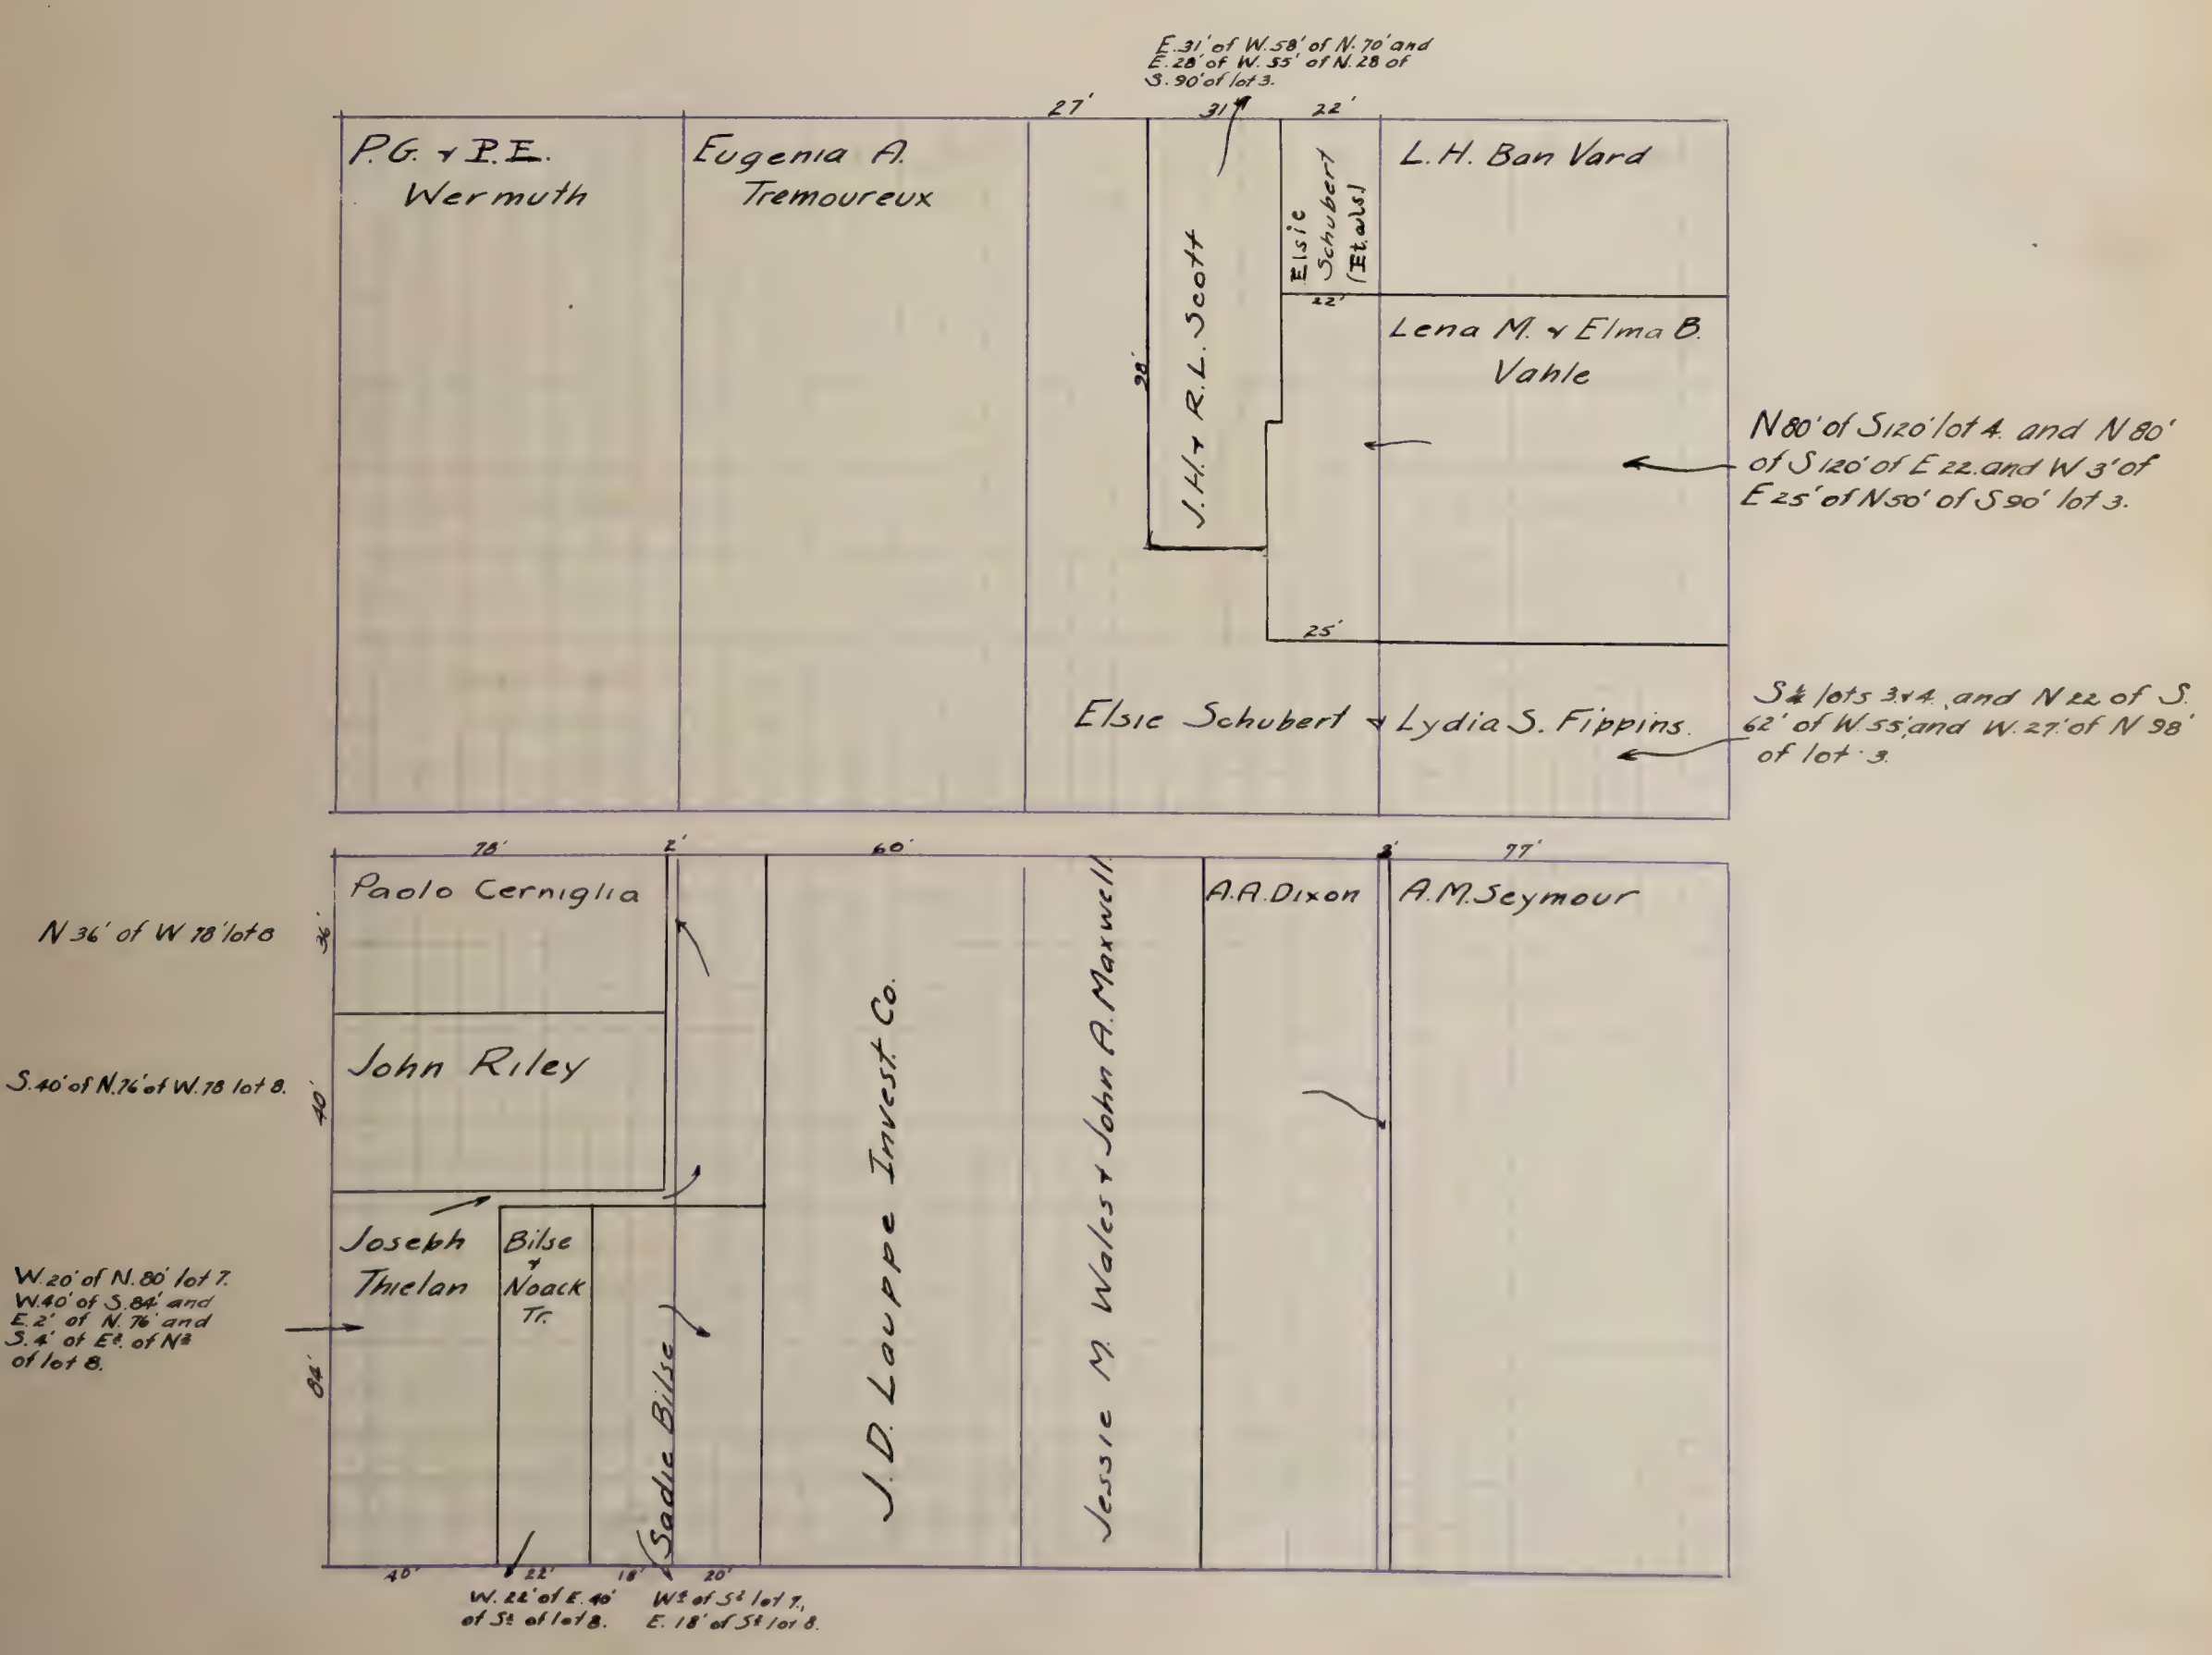 E.31' of W.58' of N.70' and
E.28' of W.55' of N.28 of
S.90' of lot 3.
27'
31'
22'
P.G. & P.E.
Wermuth
Eugenia A.
Tremoureux
98'
J.H. & R.L. Scott
Elsie
Schubert
(Et.als.)
22'
L.H. Ban Vard
Lena M. & Elma B.
Vahle
N 80' of S 120' lot 4. and N 80'
of S 120' of E 22. and W 3' of
E 25' of N 50' of S 90' lot 3.
25'
Elsie Schubert & Lydia S. Fippins.
S¼ lots 3 & 4. and N 22 of S.
62' of W.55', and W.27' of N 98'
of lot 3.
78'
2'
60'
3'
77'
Paolo Cerniglia
N 36' of W 78' lot 8
36'
John Riley
S.40' of N.76' of W.78 lot 8.
40'
Joseph
Thielan
W.20' of N.80' lot 7.
W.40' of S.84' and
E.2' of N.76' and
S.4' of E½. of N½
of lot 8.
84'
Bilse
&
Noack
Tr.
Sadie Bilse
J. D. Lauppe Invest. Co.
Jessie M. Wales & John A. Maxwell.
A.A. Dixon
A.M. Seymour
40'
22'
18'
20'
W. 22' of E. 40'
of S½ of lot 8.
W¼ of S½ lot 7.,
E. 18' of S½ lot 8.